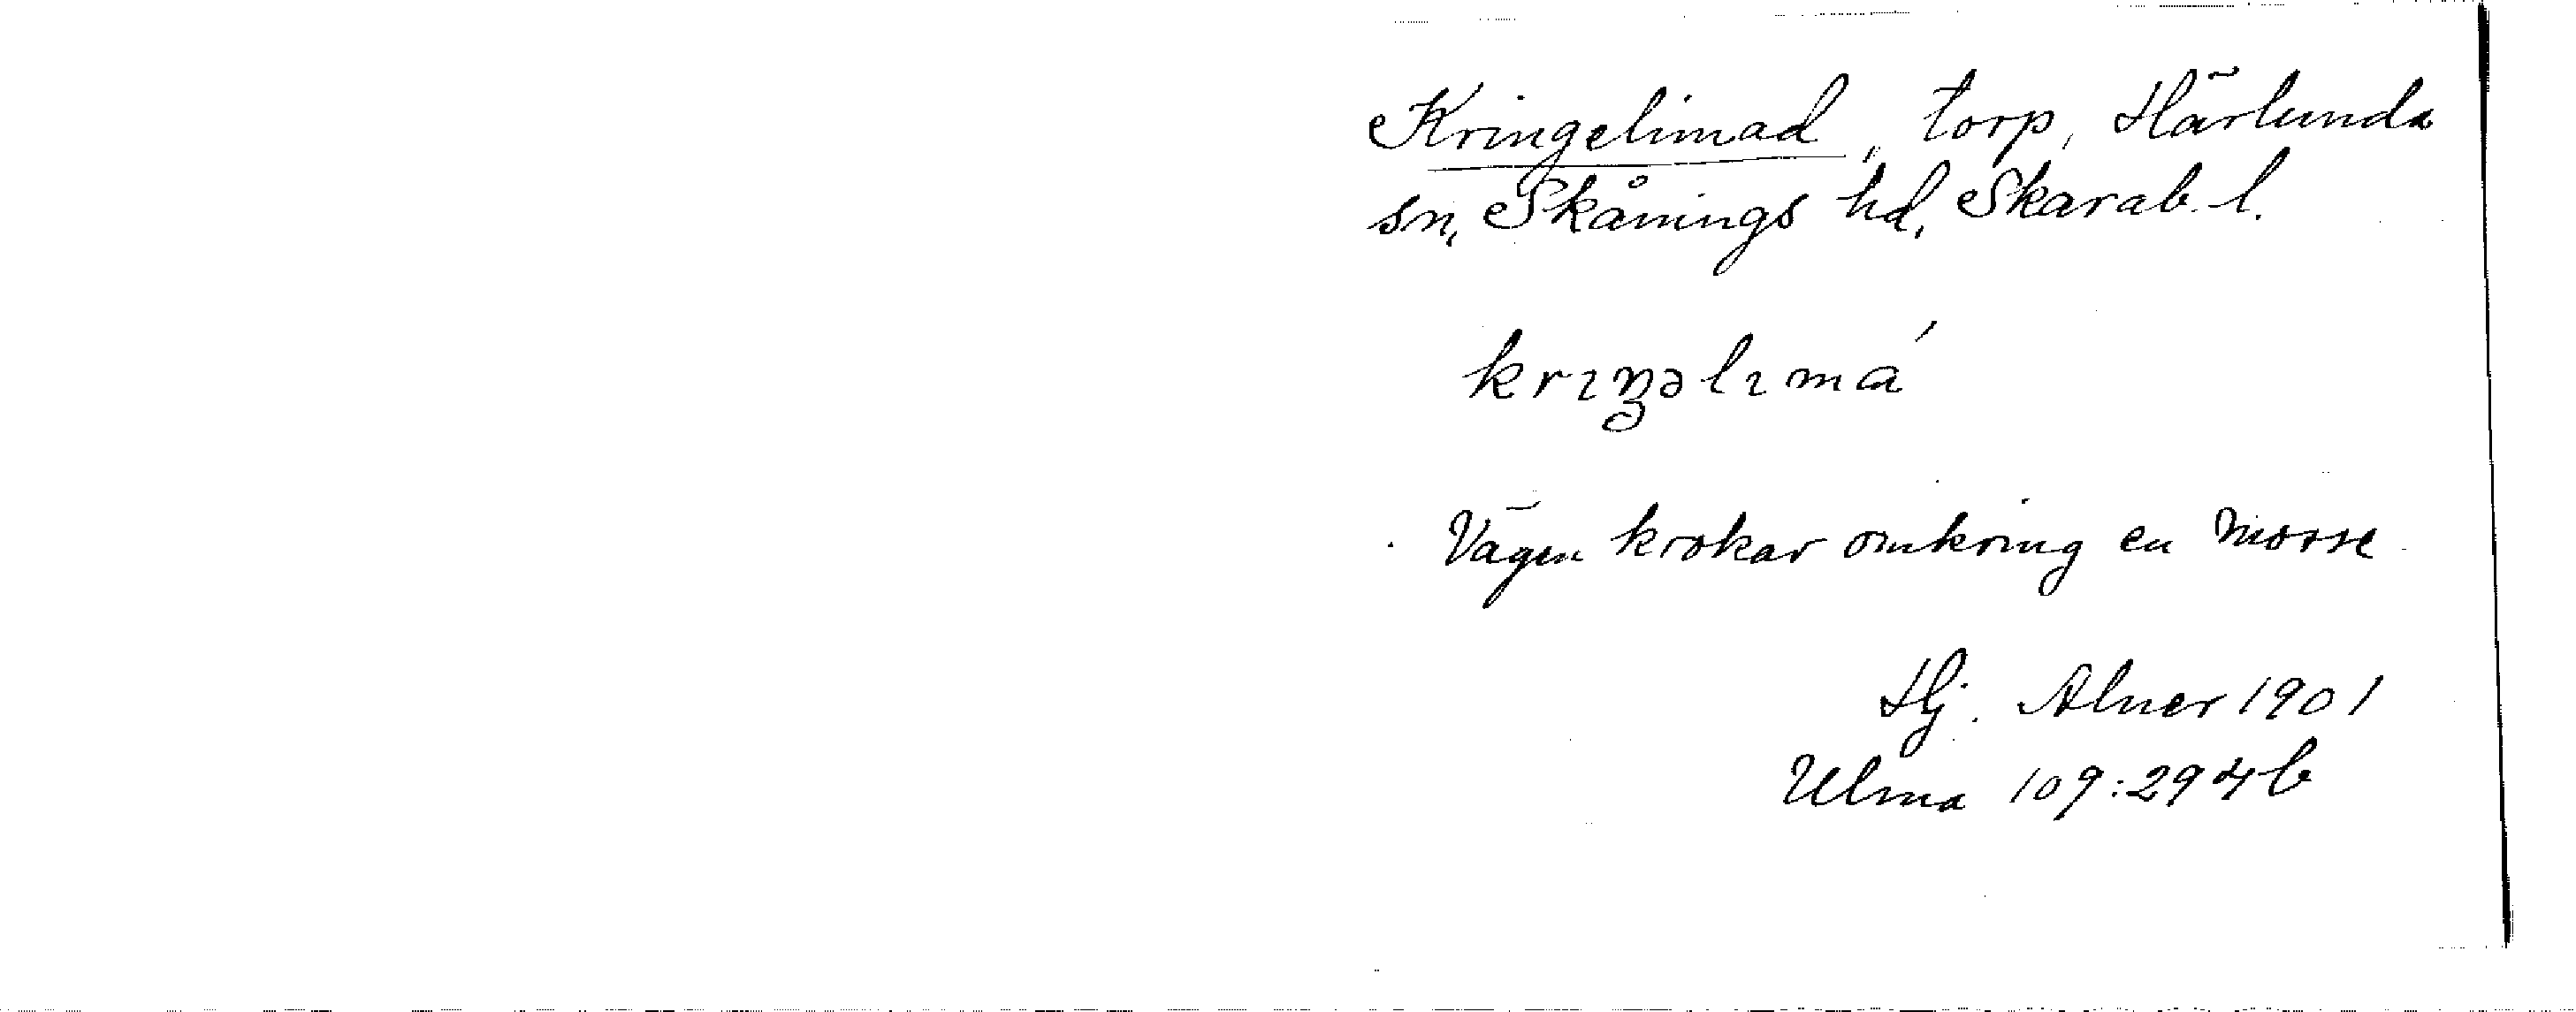 Kringelimad, torp, Härlunda
sn, Skånings hd, Skarab. l.
krıŋəlımá
Vägen krokar omkring en mosse
Hj. Alner 1901
Ulma 109:294b